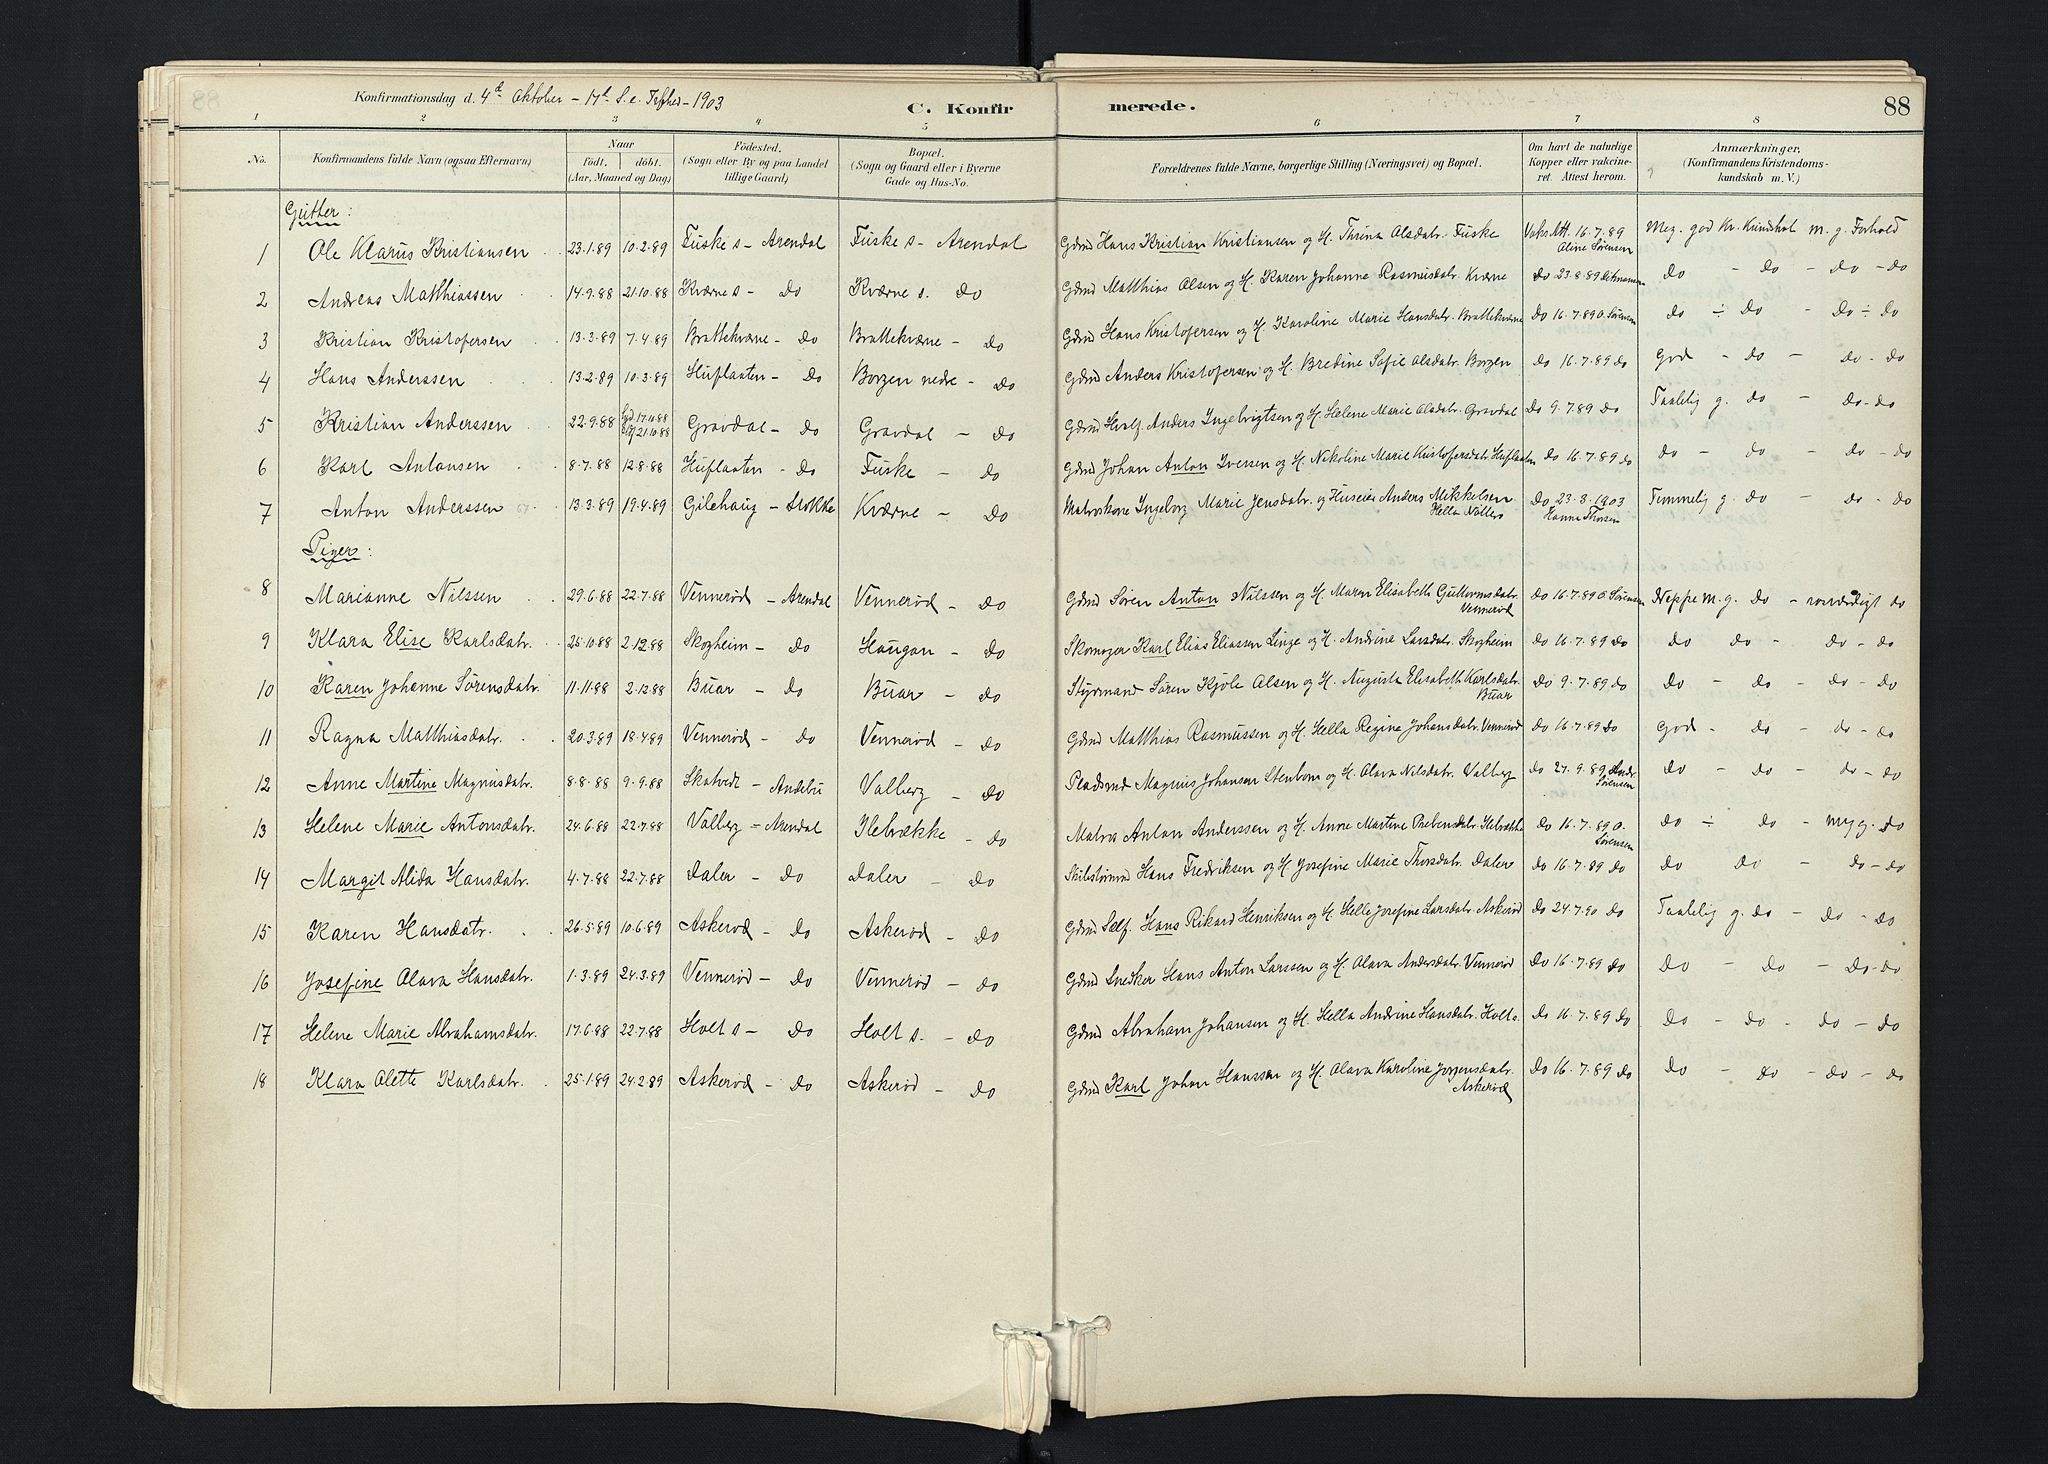 Konfirmationsdag d. 4d Oktober - 17d S. e. Trefhed - 1903
C. Konfir merede. 88
1 2 3 4 5 6 7 8
No. Konfirmandens fulde Navn (ogsaa Efternavn) Naar født. døbt. (Aar, Maaned og Dag) Fødested. (Sogn eller By og paa Landet tillige Gaard) Bopæl. (Sogn og Gaard eller i Byerne Gade og Hus-No. Forældrenes fulde Navne, borgerlige Stilling (Næringsvei) og Bopæl. Om havt de naturlige Kopper eller vakcineret. Attest herom. Anmærkninger, (Konfirmandens Kristendomskundskab m. V.)
Gutter:
1 Ole Klarus Kristiansen 23.1.89 10.2.89 Fuske s - Arendal Fuske s - Arendal Gdmd Hans Kristian Kristiansen og H. Thrina Olsdatr. Fuske Vaks Att. 16.7.89 Oline Sørensen Meg. god Kr. Kundskab m. g. Forhold
2 Andreas Matthiassen 14.9.88 21.10.88 Kværne s - Do Kværne s. Do Gdmd Matthias Olsen og H. Karen Johanne Rasmusdatr. Kværne Do 23.8.89 do - do - do - do
3 Kristian Kristofersen 13.3.89 7.4.89 Brattekværne - Do Brattekværne - Do Gdmd Hans Kristofersen og H. Karoline Marie Hansdatr. Brattekværne Do 16.7.89 O. Sørensen do ÷ do - do ÷ do
4 Hans Anderssen 13.2.89 10.3.89 Huflaaten - Do Borgen nedre - Do Gdmd Anders Kristofersen og H. Bredine Sofie Olsdatr. Borgen Do 16.7.89 do God - do - do - do
5 Kristian Anderssen 22.9.88 17.11.88 21.10.88 Gravdal - Do Gravdal - Do Gdmd Hvalf. Anders Ingebrigtsen og H. Helene Marie Olsdatr. Gravdal Do 9.7.89 do Taalelig g. do - do - do
6 Karl Antonsen 8.7.88 12.8.88 Huflaaten - Do Fuske - Do Gdmd Johan Anton Iversen og H. Nikoline Marie Kristofersdatr. Huflaaten Do 16.7.89 do do - do - do - do
7 Anton Anderssen 13.3.89 19.4.89 Gilehaug - Stokke Kværne - Do Matroskone Ingeborg Marie Jensdatr. og Huseier Anders Mikkelsen Hella Nøtterø Do 23.8.1903 Hanna Thorsen Temmelig g. do - do - do
Piger:
8 Marianne Nilssen 29.6.88 22.7.88 Vennerød - Arendal Vennerød - Do Gdmd Søren Anton Nilssen og H. Maren Elisabeth Guttormsdatr. Vennerød Do 16.7.89 O. Sørensen Neppe m. g. do - do
9 Klara Elise Karlsdatr. 25.10.88 2.12.88 Skogheim - Do Haugan - Do Skomager Karl Elias Eliassen Linge og H. Andrine Larsdatr. Skogheim Do 16.7.89 do do do - do - do
10 Karen Johanne Sørensdatr. 11.11.88 2.12.88 Buar - Do Buar - Do Styrmand Søren Kjøle Olsen og H. Augusta Elisabeth Karlsdatr. Buar Do 9.7.89 do do - do - do - do
11 Ragna Matthiasdatr. 20.3.89 18.4.89 Vennerød - Do Vennerød - Do Gdmd Matthias Rasmussen og H. Hella Regine Johansdatr. Vennerød Do 16.7.89 Do God - do - do - do
12 Anne Martine Magnusdatr. 8.8.88 9.9.88 Skatvedt - Andebu Valberg - Do Pladsmd Magnus Johansen Stenbom og H. Olava Nilsdatr. Valberg Do 27.9.89 Andr. Sørensen do - do - do - do
13 Helene Marie Antonsdatr. 24.6.88 22.7.88 Valberg - Arendal Ilebrække - Do Matros Anton Anderssen og H. Anne Martine Prebensdatr. Ilebrække Do 16.7.89 O. Sørensen do ÷ do - myg. do
14 Margit Alida Hansdatr. 4.7.88 22.7.88 Daler - Do Daler - Do Skibstømmd Hans Fredriksen og H. Josefine Marie Thorsdatr. Daler Do 16.7.89 do do do - do - do
15 Karen Hansdatr. 26.5.89 10.6.89 Askerød - Do Askerød - Do Gdmd Self. Hans Rikard Henriksen og H. Helle Josefine Larsdatr. Askerød Do 24.7.90 do Taalelig g. do - do - do
16 Josefine Olava Hansdatr. 1.3.89 24.3.89 Vennerød - Do Vennerød - Do Gdmd Snedker Hans Anton Larssen og H. Olava Andersdatr. Vennerød Do 16.7.89 do do - do - do - do
17 Helene Marie Abrahamsdatr. 17.6.88 22.7.88 Holt s - Do Holt s. - Do Gdmd Abraham Johansen og H. Hella Andrine Hansdatr. Holt s. Do 16.7.89 do do - do - do - do
18 Klara Olette Karlsdatr. 25.1.89 24.2.89 Askerød - Do Askerød - Do Gdmd Karl Johan Hanssen og H. Olava Karoline Jørgensdatr. Askerød Do 16.7.89 do do - do - do - do